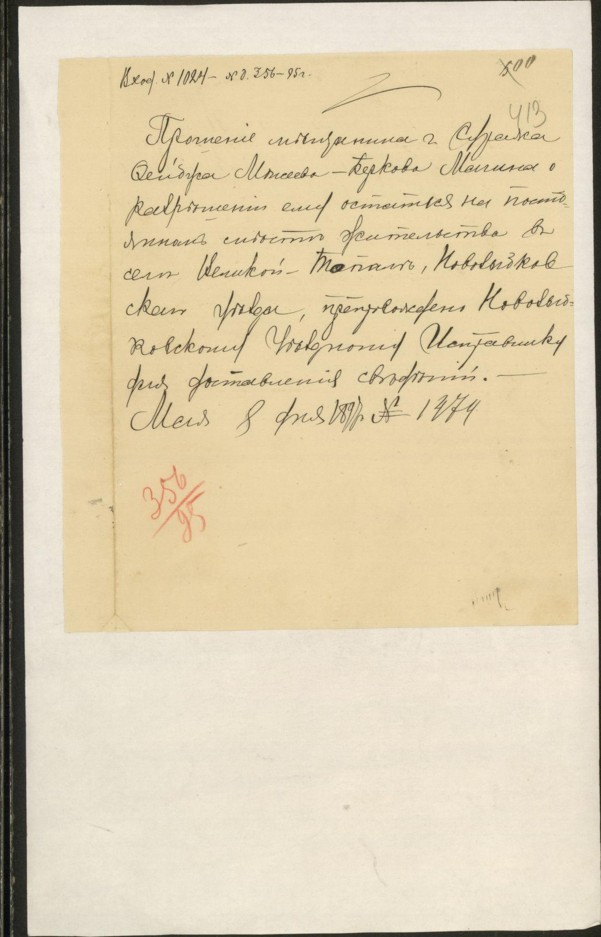 Вход № 1024 – № д. 356–95 г.
500
413
Прошеніе мѣщанина г. Суража
Мовшева – Беркова Магина о
разрѣшеніи ему остаться на посто-
янномъ мѣстѣ жительства въ
селѣ Великой – Топали, Новозыбков
скаго уѣзда, препровождено Новозыб-
ковскому Уѣздному Исправнику
для доставленія свѣдѣній. —
Мая 8 дня № 1974
356
95